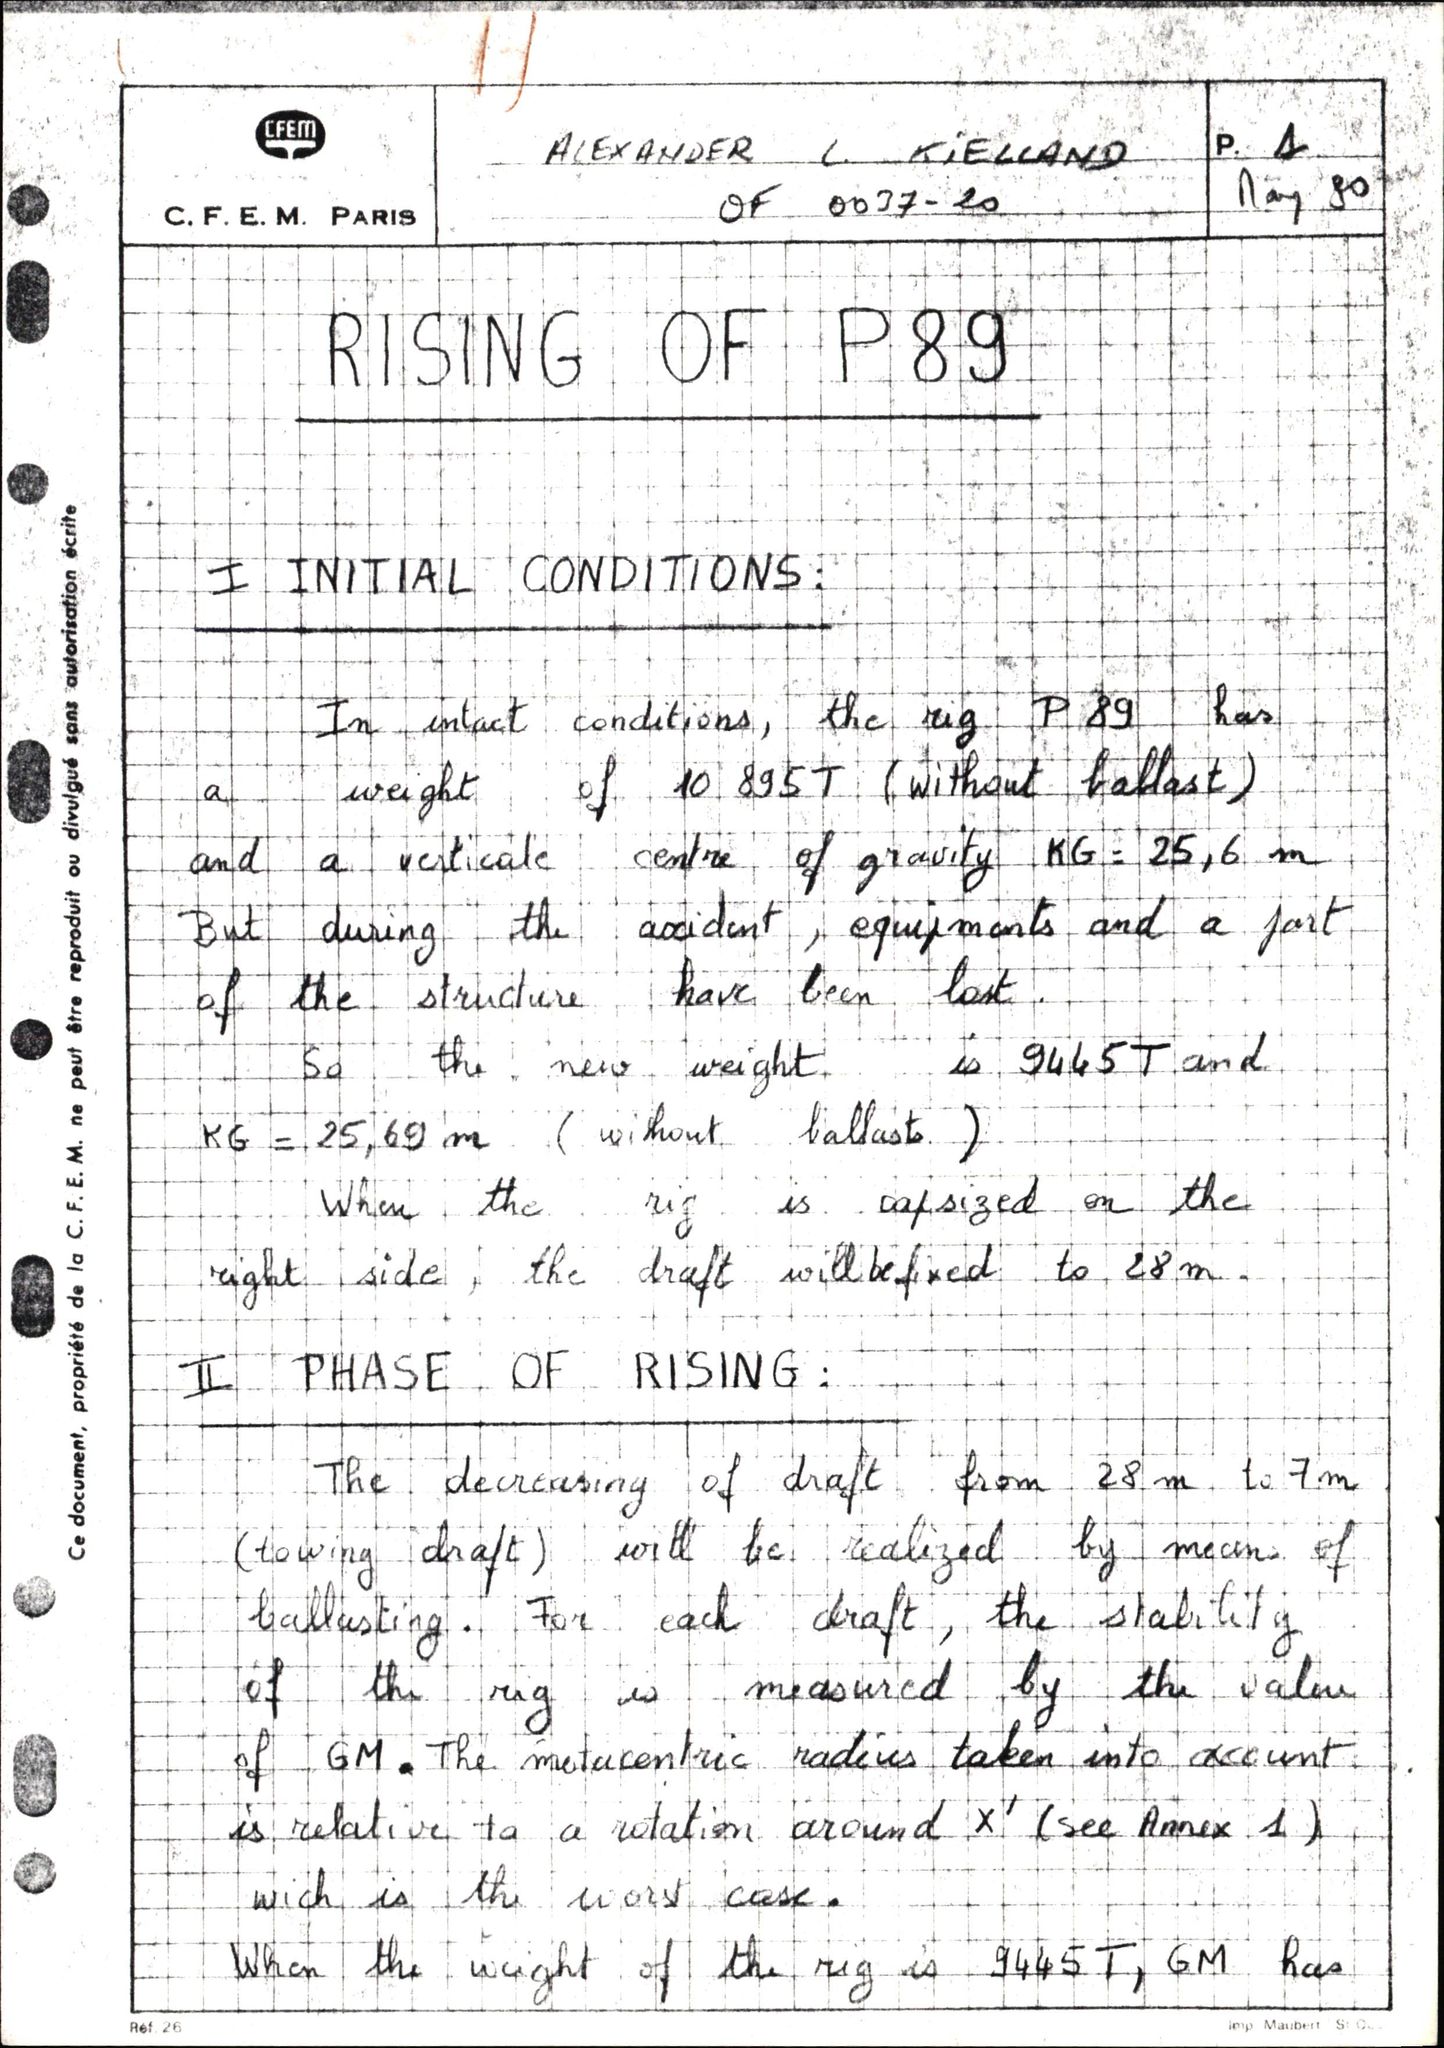 CFEM
C. F. E. M. PARIS
ALEXANDER L. KIELLAND
OF 0037-20
P. 1
May 80
RISING OF P89
I INITIAL CONDITIONS:
In intact conditions, the rig P 89 has
a weight of 10 895T (without ballast)
and a verticale centre of gravity KG = 25,6 m
But during the accident, equipments and a part
of the structure have been lost.
So the new weight is 9445T and
KG = 25,69 m (without ballasts)
When the rig is capsized on the
right side, the draft will be fixed to 28m.
II PHASE OF RISING:
The decreasing of draft from 28m to 7m
(towing draft) will be realized by means of
ballasting. For each draft, the stability
of the rig is measured by the value
of GM. The metacentric radius taken into account
is relative to a rotation around X' (see Annex 1)
wich is the worst case.
When the weight of the rig is 9445T, GM has
Ce document, propriété de la C. F. E. M. ne peut être reproduit ou divulgué sans autorisation écrite
Réf. 26
Imp. Maubert